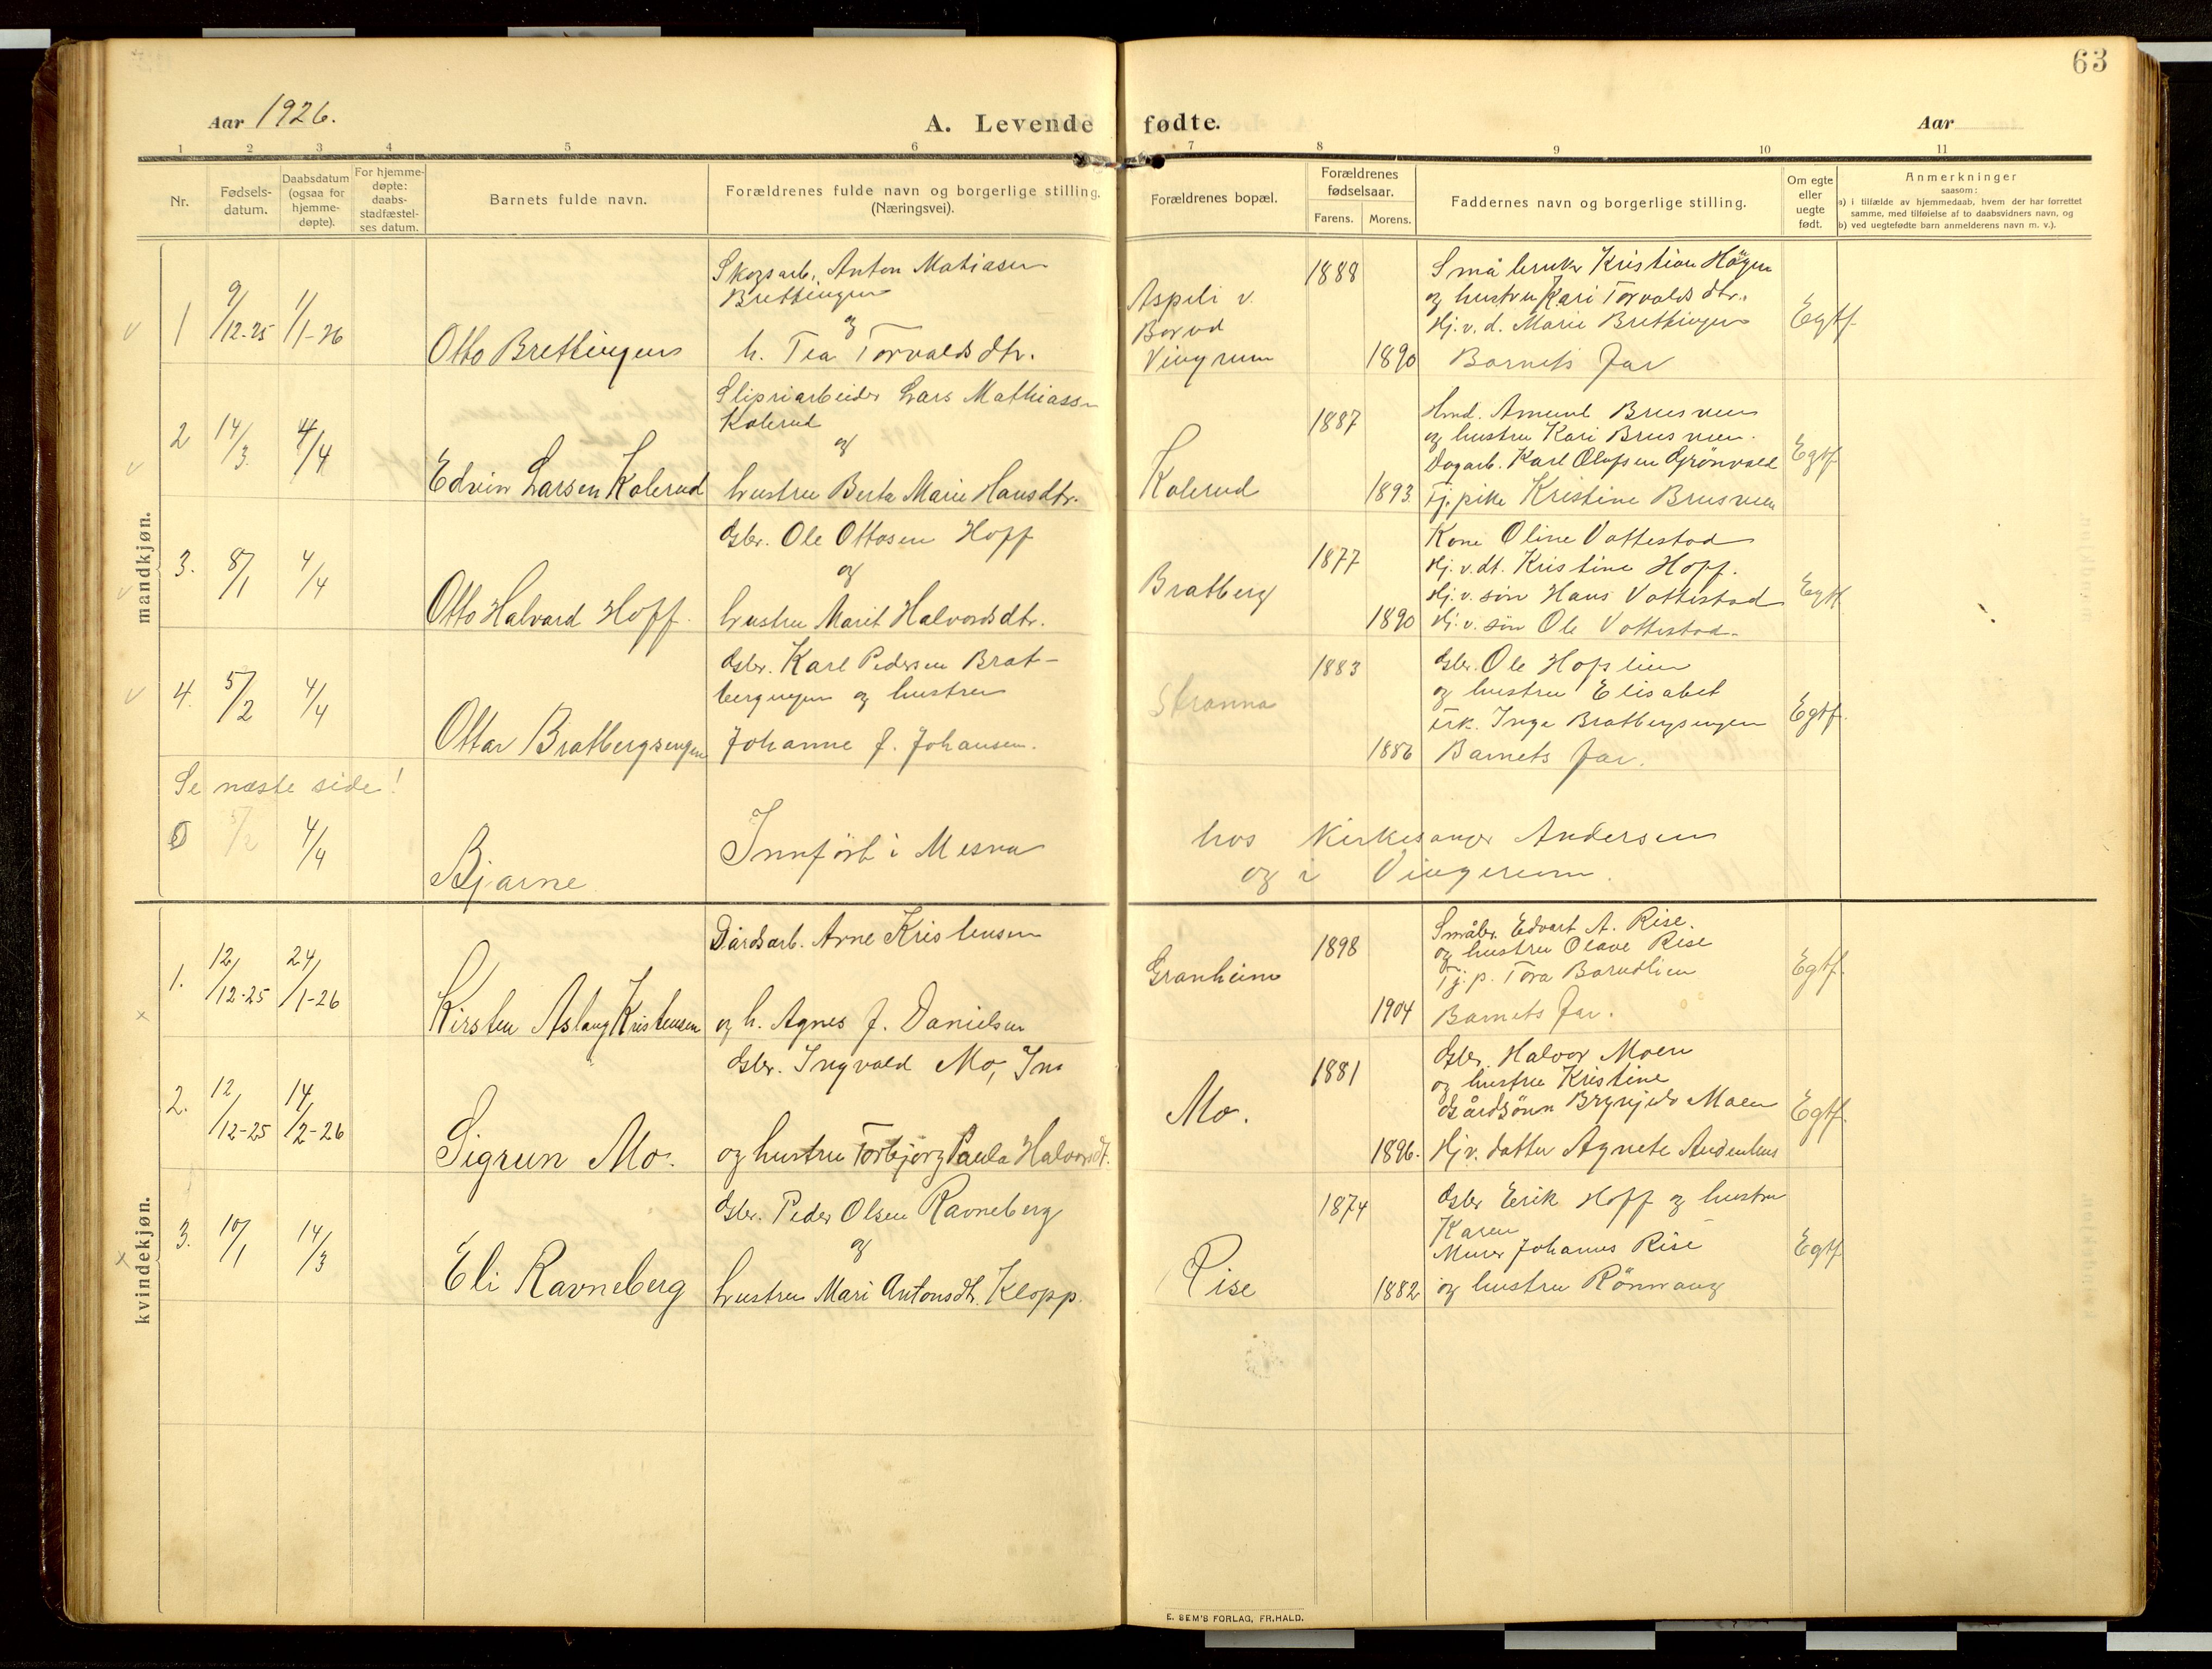 63
Aar 1926.
A. Levende fødte.
Aar
1 2 3 4 5 6 7 8 9 10 11
Nr.
Fødsels-
datum.
Daabsdatum
(ogsaa for
hjemme-
døpte).
For hjemme-
døpte:
daabs-
stadfæstel-
ses datum.
Barnets fulde navn.
Forældrenes fulde navn og borgerlige stilling.
(Næringsvei).
Forældrenes bopæl.
Forældrenes
fødselsaar.
Farens. Morens.
Faddernes navn og borgerlige stilling.
Om egte
eller
uegte
født.
Anmerkninger
saasom:
a) i tilfælde av hjemmedaab, hvem der har forrettet
samme, med tilføielse af to daabsvidners navn, og
b) ved uegtefødte barn anmelderens navn m. v.).
mandkjøn.
1
9/12-25
1/1-26
Otto Brettingen
Skogsarb. Anton Matiasen
Brettingen
og
h. Tea Torvaldsdtr.
Aspeli v.
Borud
Vingrum
1888
1890
Småbruker Kristian Haugen
og hustru Kari Torvaldsdtr.
Hj. v. d. Marie Brettingen
Barnets Far
Egtf.
2
14/3.
4/4
Edvin Larsen Kolerud
Sliperiarbeider Lars Mathiassen
Kolerud
og
hustru Berte Marie Hansdtr.
Kolerud
1887
1893.
Hmd. Amund Brusveen
og hustru Kari Brusveen.
Dagarb. Karl Olufsen Grönvold
Tj. pike Kristine Brusveen
Egtf
3.
8/1
4/4
Otto Halvard Hoff.
Gbr. Ole Ottosen Hoff
og
hustru Marit Halvordsdtr.
Bratberg
1877
1890
Kone Oline Vottestad
Hj. v. dt. Kristine Hoff.
Hj. v. søn Hans Vottestad
Hj. v. søn Ole Vottestad.
Egtf
4.
5/2
4/4
Ottar Bratbergsengen
Gbr. Karl Pedersen Brat-
bergengen og hustru
Johanne f. Johansen.
Stranna
1883
1886
Gbr. Ole Hoflien
og hustru Elisabet
Frk. Inga Bratbergsengen
Barnets Far.
Egtf.
Se næste side!
5/2
4/4
Bjarne
Innført i Mesna
hos Kirkesanger Andersen
og i Vingerum.
kvindekjøn.
1.
12/12-25
24/1-26
Kirsten Aslaug Kristensen
Gårdsarb. Arne Kristensen
og h. Agnes f. Danielsen
Granheim
1898
1904
Småbr. Edvart A. Rise.
og hustru Olave Rise
Tj. p. Tora Barudlien
Barnets Far.
Egtf.
2.
12/12-25
14/2-26
Sigrun Mo.
Gbr. Ingvald Mo,
og hustru Torbjørg Paula Halvorsdt.
Mo.
1881
1896.
Gbr. Halvor Moen
og hustru Kristine
Gårdsønn Brynjulv Moen
Hj v. datter Agnete
Egtf.
3.
10/1
14/3
Eli Ravneberg
Gbr. Peder Olsen Ravneberg
og
hustru Mari Antonsdt. Klopp.
Rise
1874
1882
Gbr Erik Hoff og hustru
Karen
Murer Johannes Rise
og hustru Rönnaug
Egtf
E. SEM'S FORLAG, FR.HALD.